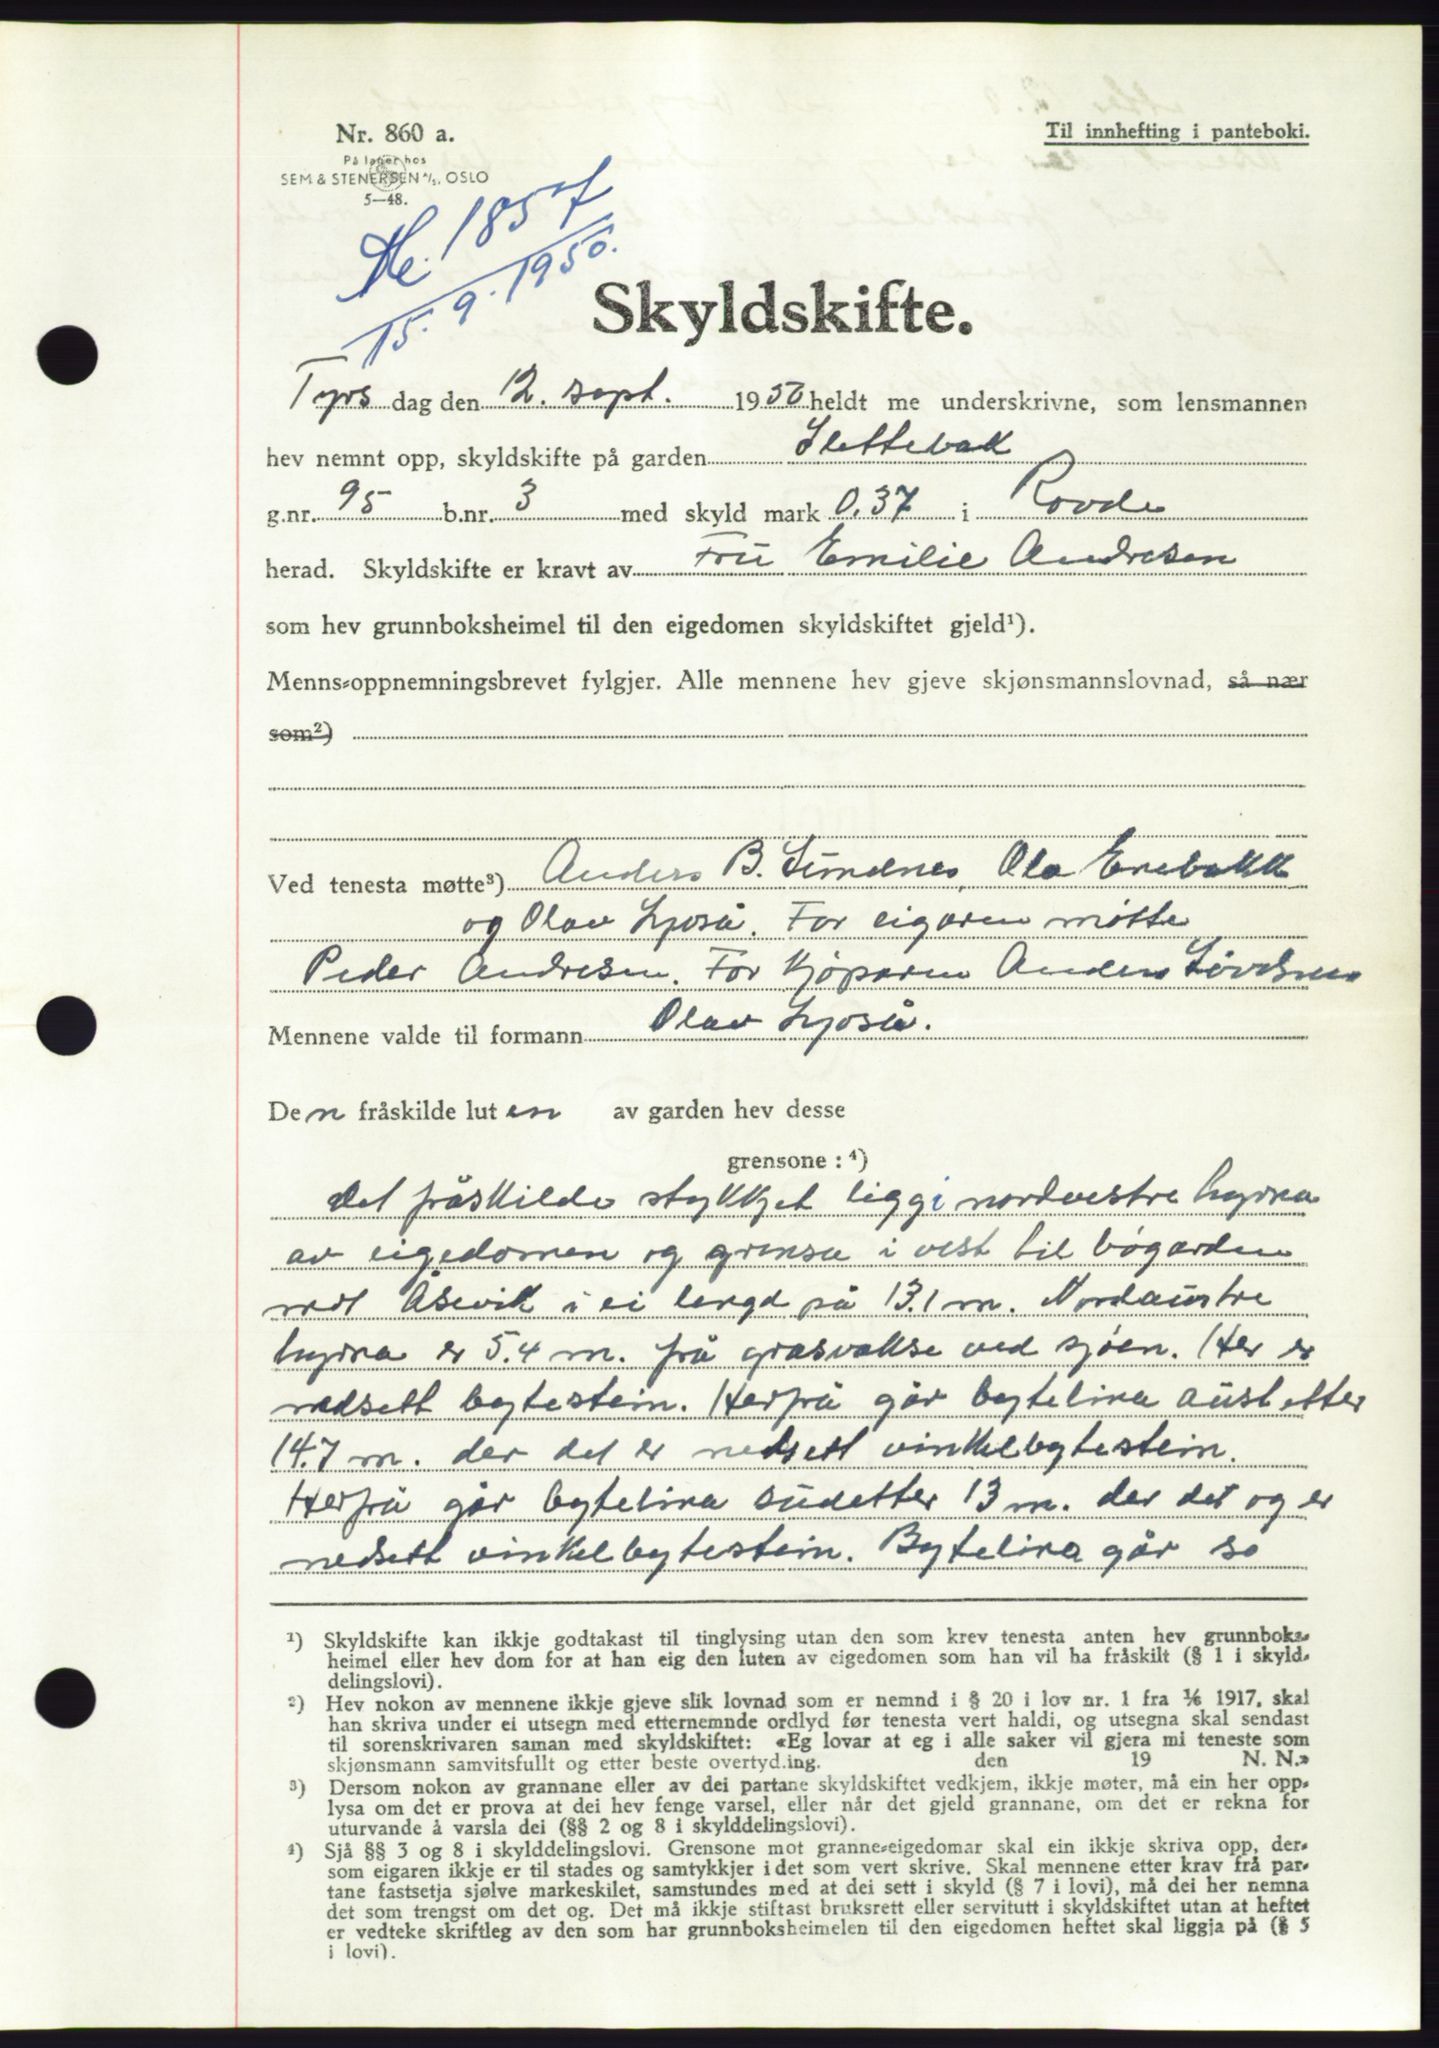 Nr. 860 a.
Til innhefting i panteboki.
På lager hos
SEM & STENERSEN A/S, OSLO
5—48.
1857
15. 9. 1950.
Skyldskifte.
Tyrs dag den 12. sept. 1950 heldt me underskrivne, som lensmannen
hev nemnt opp, skyldskifte på garden Slettebak
g.nr. 95 b.nr. 3 med skyld mark 0,37 i Rovde
herad. Skyldskifte er kravt av Frü Emilie Andresen
som hev grunnboksheimel til den eigedomen skyldskiftet gjeld¹).
Menns-oppnemningsbrevet fylgjer. Alle mennene hev gjeve skjønsmannslovnad, så nær
som²)
Ved tenesta møtte³) Anders B. Sündnes, Ola Enebakk
og Olav Ljoså. For eigaren møtte
Peder Andresen. For kjøparen Anders
Mennene valde til formann Olav Ljoså.
Den fråskilde luten av garden hev desse
grensone : ⁴)
Det fråskilde stykkjet ligg i nordvestre hyrna
av eigedomen og grensa i vest til bøgarden
mot Åsevik i ei lengd på 13.1 m. Nordaüstre
hyrna er 5.4 m. frå grasvakse ved sjøen. Her er
nedsett bytestein. Herfrå går bytelina aüstetter
14.7 m. der det er nedsett vinkelbytestein.
Herfrå går bytelina südetter 13 m. der det og er
nedsett vinkelbytestein. Bytelina går so
¹) Skyldskifte kan ikkje godtakast til tinglysing utan den som krev tenesta anten hev grunnboks-
heimel eller hev dom for at han eig den luten av eigedomen som han vil ha fråskilt (§ 1 i skyld-
delingslovi).
²) Hev nokon av mennene ikkje gjeve slik lovnad som er nemnd i § 20 i lov nr. 1 fra 1/6 1917, skal
han skriva under ei utsegn med etternemnde ordlyd før tenesta vert haldi, og utsegna skal sendast
til sorenskrivaren saman med skyldskiftet: «Eg lovar at eg i alle saker vil gjera mi teneste som
skjønsmann samvitsfullt og etter beste overtyd.ing. den 19 N. N.»
³) Dersom nokon av grannane eller av dei partane skyldskiftet vedkjem, ikkje møter, må ein her opp-
lysa om det er prova at dei hev fenge varsel, eller når det gjeld grannane, om det er rekna for
uturvande å varsla dei (§§ 2 og 8 i skylddelingslovi).
⁴) Sjå §§ 3 og 8 i skylddelingslovi. Grensone mot granne-eigedomar skal ein ikkje skriva opp, der-
som eigaren ikkje er til stades og samtykkjer i det som vert skrive. Skal mennene etter krav frå par-
tane fastsetja sjølve markeskilet, samstundes med at dei sett i skyld (§ 7 i lovi), må dei her nemna
det som trengst om det og. Det må ikkje stiftast bruksrett eller servitutt i skyldskiftet utan at heftet
er vedteke skriftleg av den som har grunnboksheimelen til den eigedomen heftet skal liggja på (§ 5
i lovi).